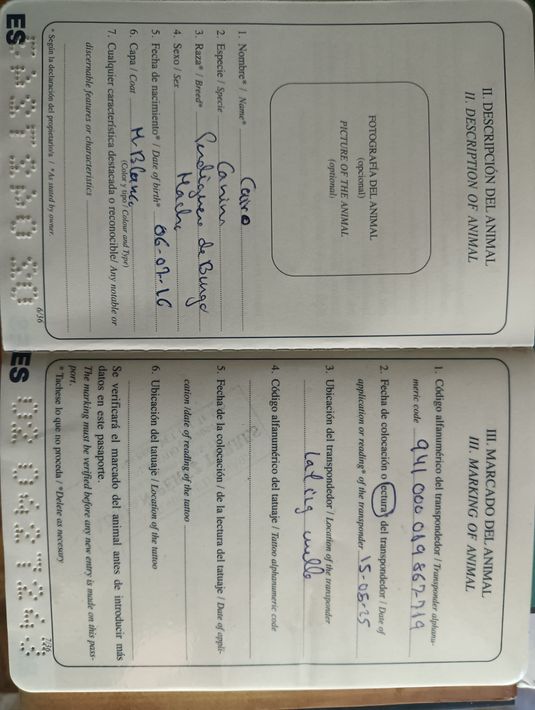 II. DESCRIPCIÓN DEL ANIMAL
II. DESCRIPTION OF ANIMAL
FOTOGRAFÍA DEL ANIMAL
(opcional)
PICTURE OF THE ANIMAL
(optional)
1. Nombre* / Name* Cairo
2. Especie / Specie Canina
3. Raza* / Breed* Perdiguero de Burgo
4. Sexo / Sex Macho
5. Fecha de nacimiento* / Date of birth* 06-07-16
6. Capa / Coat M Blanco
(Color y tipo / Colour and Type)
7. Cualquier característica destacada o reconocible/ Any notable or
discernable features or characteristics
* Según la declaración del propietario/a / *As stated by owner.
6/36
ES
III. MARCADO DEL ANIMAL
III. MARKING OF ANIMAL
1. Código alfanumérico del transpondedor / Transponder alphanu-
meric code 941 000 019 862719
2. Fecha de colocación o lectura* del transpondedor / Date of
application or reading* of the transponder 15-05-25
3. Ubicación del transpondedor / Location of the transponder
Lat izq cuello
4. Código alfanumérico del tatuaje / Tattoo alphanumeric code
5. Fecha de la colocación / de la lectura del tatuaje / Date of appli-
cation /date of reading of the tattoo
6. Ubicación del tatuaje / Location of the tattoo
Se verificará el marcado del animal antes de introducir más
datos en este pasaporte.
The marking must be verified before any new entry is made on this pass-
port.
* Táchese lo que no proceda / *Delete as necesary
7/36
ES